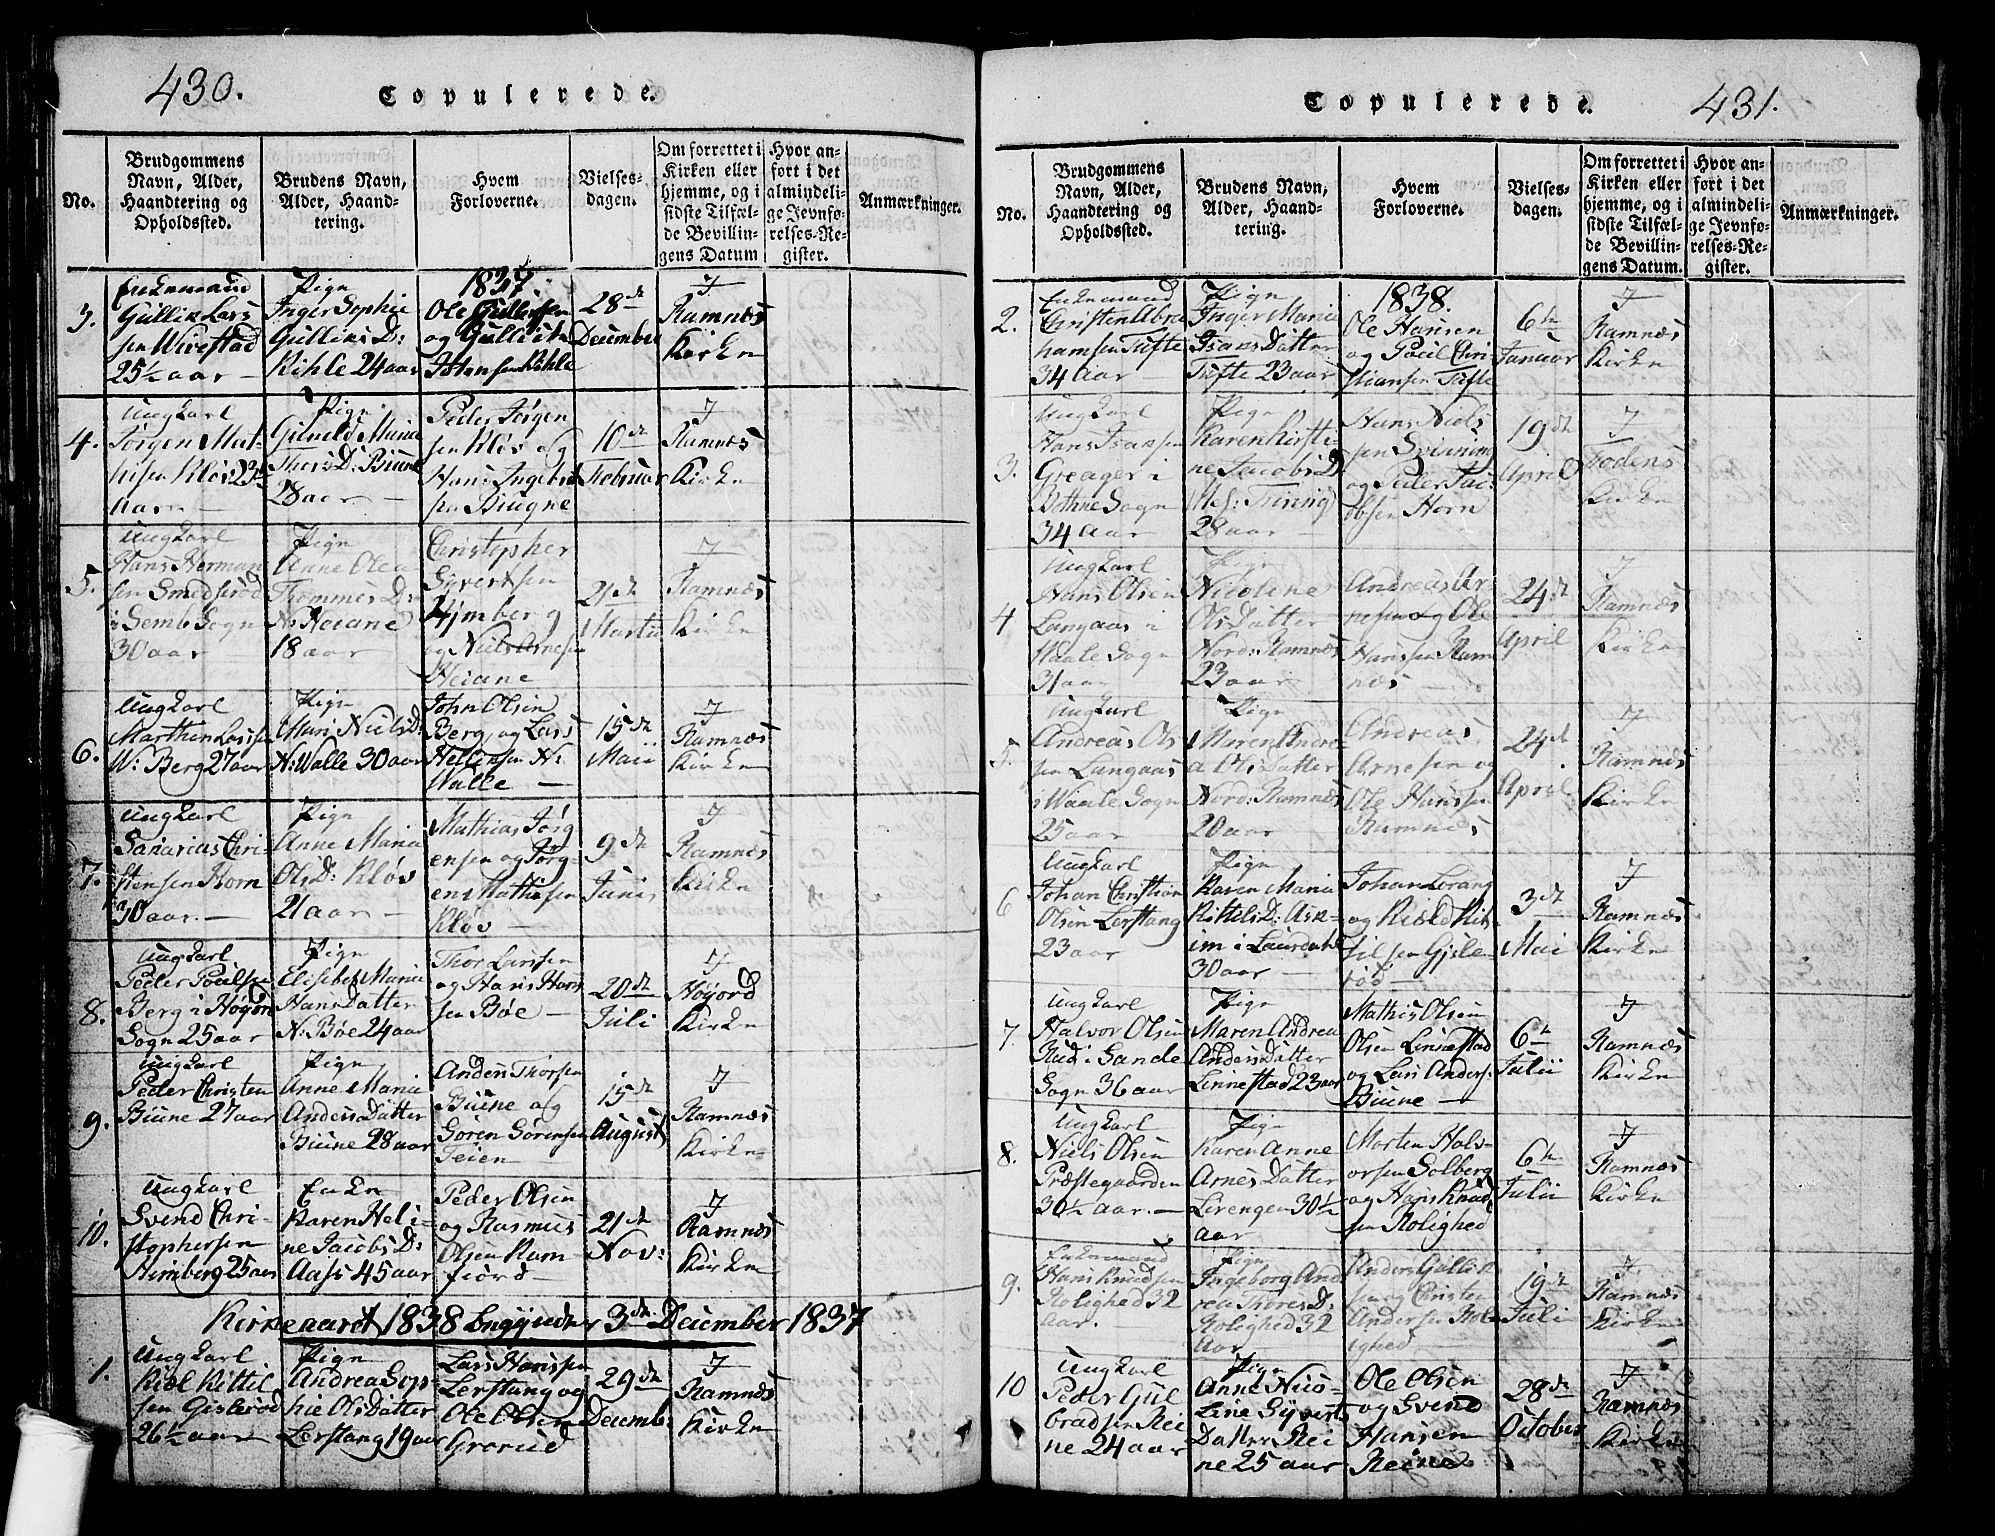 430.
Copulerede.
No.
Brudgommens
Navn, Alder,
Haandtering og
Opholdssted.
Brudens Navn,
Alder, Haand-
tering.
Hvem
Forloverne.
Vielses-
dagen.
Om forrettet i
Kirken eller
hjemme, og i
sidste Tilfæl-
de Bevillin-
gens Datum
Hvor an-
ført i det
almindeli-
ge Jevnfø-
relses-Re-
gister.
Anmærkninger.
1837.
3.
Enkemand
Gullik Lars
sen Wirestad
25½ aar
Pige
Inger Sophie
Gulliks D:
Kihle 24 aar
Ole Gulliksen
og Gullik
Johnsen Kihle
28de
December
I
Ramnæs
Kirke
4.
Ungkarl
Jørgen Mat-
hisen Kløv 23½
aar
Pige
Gunild Maria
Thors D: Biune
28 aar
Peder Jørgen
sen Kløv og
Hans Ingebret
sen Biugne
10de
Februar
I
Ramnæs
Kirke
5.
Ungkarl
Hans Herman
sen Smedsrød
i Semb Sogn
30 aar
Pige
Anne Olea
Thommes D:
N: Heiane
18 aar
Christopher
Syvertsen
Hjmberg
og Niels Arnesen
Heiane
21de
Martii
I
Ramnæs
Kirke
6.
Ungkarl
Marthen Larssen
W: Berg 27 aar
Pige
Mari Niels D:
N: Walle 30 aar
John Olsen
Berg og Lars
Hellesen N:
Walle
15de
Maii
I
Ramnæs
Kirke
7.
Ungkarl
Sanarias Chri-
stensen Horn
30 aar.
Pige
Anne Maria
Ols D: Kløv
21 aar
Mathias Jørg
ensen og Jørg-
en Mathisen
Kløv
9de
Junii
I
Ramnæs
Kirke
8.
Ungkarl
Peder Poulsen
Berg i Høyord
Sogn 25 aar
Pige
Elisabet Maria
Hans Datter
N: Bøe 24 aar
Thor Larssen
og Hans Hans
sen Bøe
20de
Juli
I
Høyord
Kirke
9.
Ungkarl
Peder Christen
Biune 27 aar
Pige
Anne Maria
Anders Datter
Biune 28 aar
Anders Thorsen
Biune og
Søren Sørensen
Feien
15de
August
I
Ramnæs
Kirke
10.
Ungkarl
Svend Chri-
stophersen
Himberg 25 aar
Enke
Karen Heli-
ne Jacobs D:
Aass 45 aar
Peder Olsen
og Rasmus
Olsen Ram
fiord
21de
Nov:
I
Ramnæs
Kirke
Kirkeaaret 1838 begynder 3de December 1837
1.
Ungkarl
Kiøl Kittil
sen Gislerød
26½ aar
Pige
Andrea Sop-
hie Ols Datter
Lerstang 19 aar
Lars Hanssen
Lerstang og
Ole Olsen
Grorud
29de
Decemb:
I
Ramnæs
Kirke
Copulerede.
431.
No.
Brudgommens
Navn, Alder,
Haandtering og
Opholdssted.
Brudens Navn,
Alder, Haand-
tering.
Hvem
Forloverne.
Vielses-
dagen.
Om forrettet i
Kirken eller
hjemme, og i
sidste Tilfæl-
de Bevillin-
gens Datum.
Hvor an-
ført i det
almindeli-
ge Jevnfø-
relses-Re-
gister.
Anmærkninger.
1838.
2.
Enkemand
Christen Abra
hamsen Tufte
34 Aar
Pige
Inger Maria
Isaks Datter
Tufte 23 aar
Ole Hansen
og Poul Chri
stiansen Tufte
6te
Januar
I
Ramnæs
Kirke
3.
Ungkarl
Hans Isaksen
Greager i
Bothne Sogn
34 aar
Pige
Karen Kirsti-
ne Jacobs D
28 aar
Hans Niels
sen Svinning
og Peder Jac-
obsen Horn
19de
April
I
Fodens
Kirke
4
Ungkarl
Hans Olsen
Langaas i
Waale Sogn
31 aar
Pige
Nicoline
Ols Datter
Nord: Ramnæs
23 aar
Andreas Ar-
nesen og Ole
Hanssen Ram
næs
24de
April
I
Ramnæs
Kirke
5.
Ungkarl
Andreas Ols
sen Langaas
i Waale Sogn
25 aar
Pige
Maren Andre-
a Ols Datter
Nord: Ramnæs
20 aar
Andreas
Arnesen og
Ole Hanssen
Ramnæs
24de
April
I
Ramnæs
Kirke
6
Ungkarl
Johan Christian
Olsen Lerstang
23 aar
Pige
Karen Maria
Kittels D: Ask-
im i Laurdahl
30 aar
Johan Lorang
og Kiøld Kit-
tilsen Gisle-
rød
3de
Mai
I
Ramnæs
Kirke
7.
Ungkarl
Halvor Olsen
Rud i Sande
Sogn 36 aar
Pige
Maren Andrea
Anders Datter
Linnestad 23 aar
Mathis Olsen
Olsen Linnestad
og Lars Anders:
Biune
6te
Julii
I
Ramnæs
Kirke
8.
Ungkarl
Niels Olsen
Præstegaarden
30½ aar.
Pige
Karen Anne
Arnes Datter
Lirengen 30½
aar
Morten Halv-
orsen Solberg
og Hans Knud
sen Rolighed
6te
Julii
I
Ramnæs
Kirke
9.
Enkemand
Hans Knudsen
Rolighed 32
aar.
Pige
Ingeborg And
rea Thores D:
Rolighed 32
Aar
Anders Gullik
sen og Christen
Andersen Rol-
ighed
19de
Juli
I
Ramnæs
Kirke
10
Ungkarl
Peder Gul
brandsen Rei
ne 24 aar
Pige
Anne Nico-
line Syverts
Datter Rei
ne 25 aar
Ole Olsen
og Svend
Hansen
Reine
28de
October
I
Ramnæs
Kirke